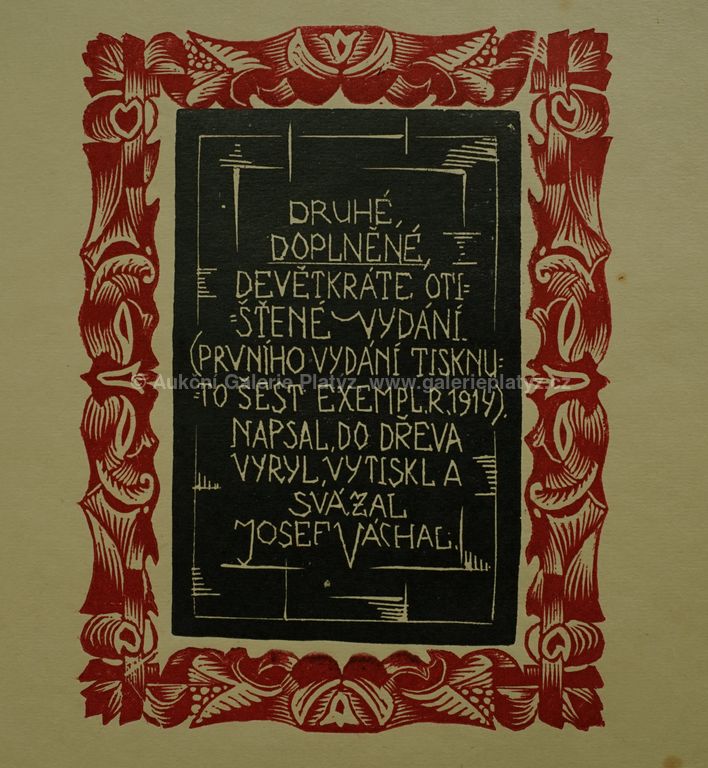 DRUHÉ,
DOPLNĚNÉ,
DEVĚTKRÁTE OTI=
=ŠTĚNÉ VYDÁNÍ.
(PRVNÍHO VYDÁNÍ TISKNU=
© Aukční Galerie Platýz, www.galerieplatyz.cz
=TO ŠEST EXEMPL.R.1914).
NAPSAL, DO DŘEVA
VYRYL, VYTISKL A
SVÁZAL
JOSEF VÁCHAL.